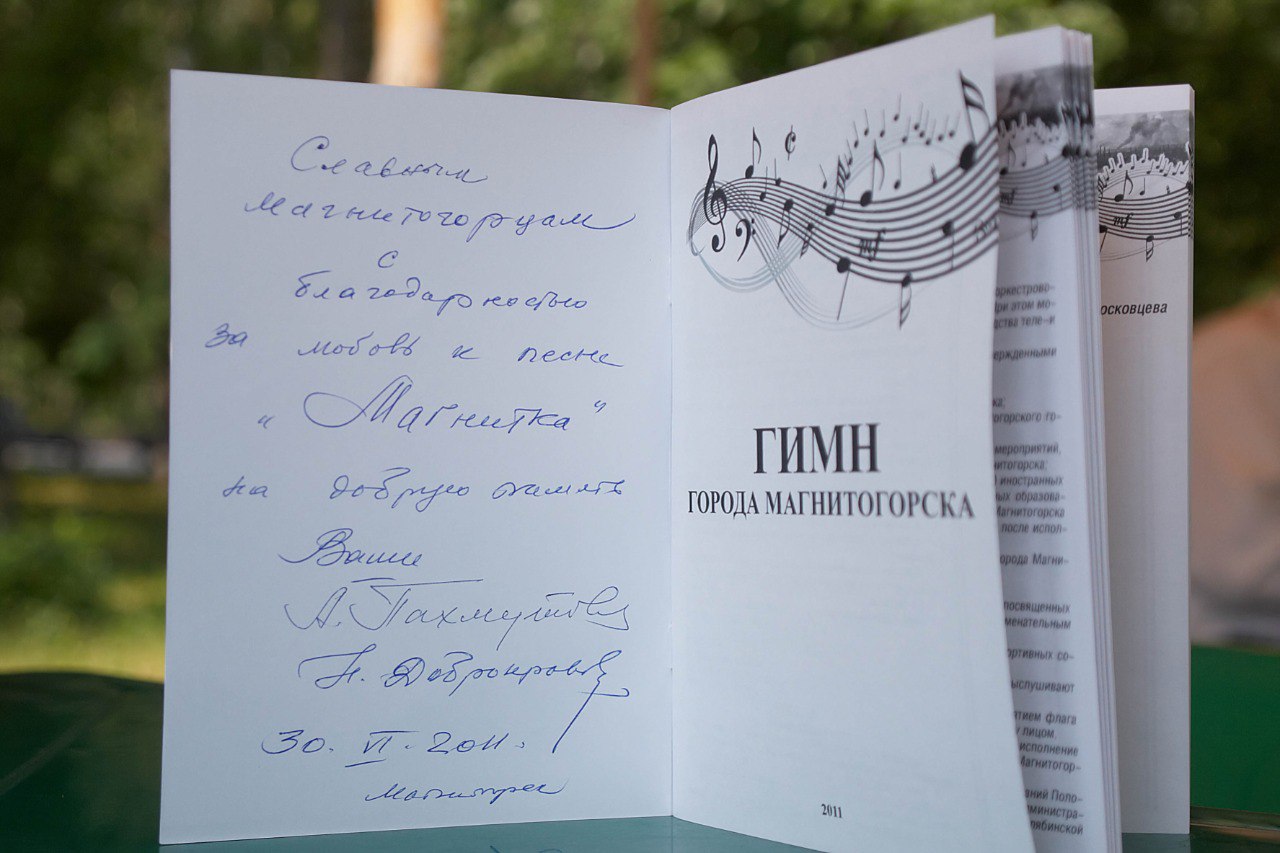 Славным
Магнитогорцам
с
благодарностью
за любовь к песне
„Магнитка"
на добрую память
Ваши
А. Пахмутова
Н. Добронравов
30. VI. 2011.
ГИМН
ГОРОДА МАГНИТОГОРСКА
2011
mf
mf
оркестрово-
при этом мо-
дства теле-и
ержденными
ка;
огорского го-
мероприятий,
нитогорска;
иностранных
ных образова-
Магнитогорска
после испол-
орода Магни-
посвященных
менательным
ортивных со-
выслушивают
ятием флага
у лицом,
исполнение
Магнитогор-
ваний Поло-
дминистра-
лябинской
mf
осковцева